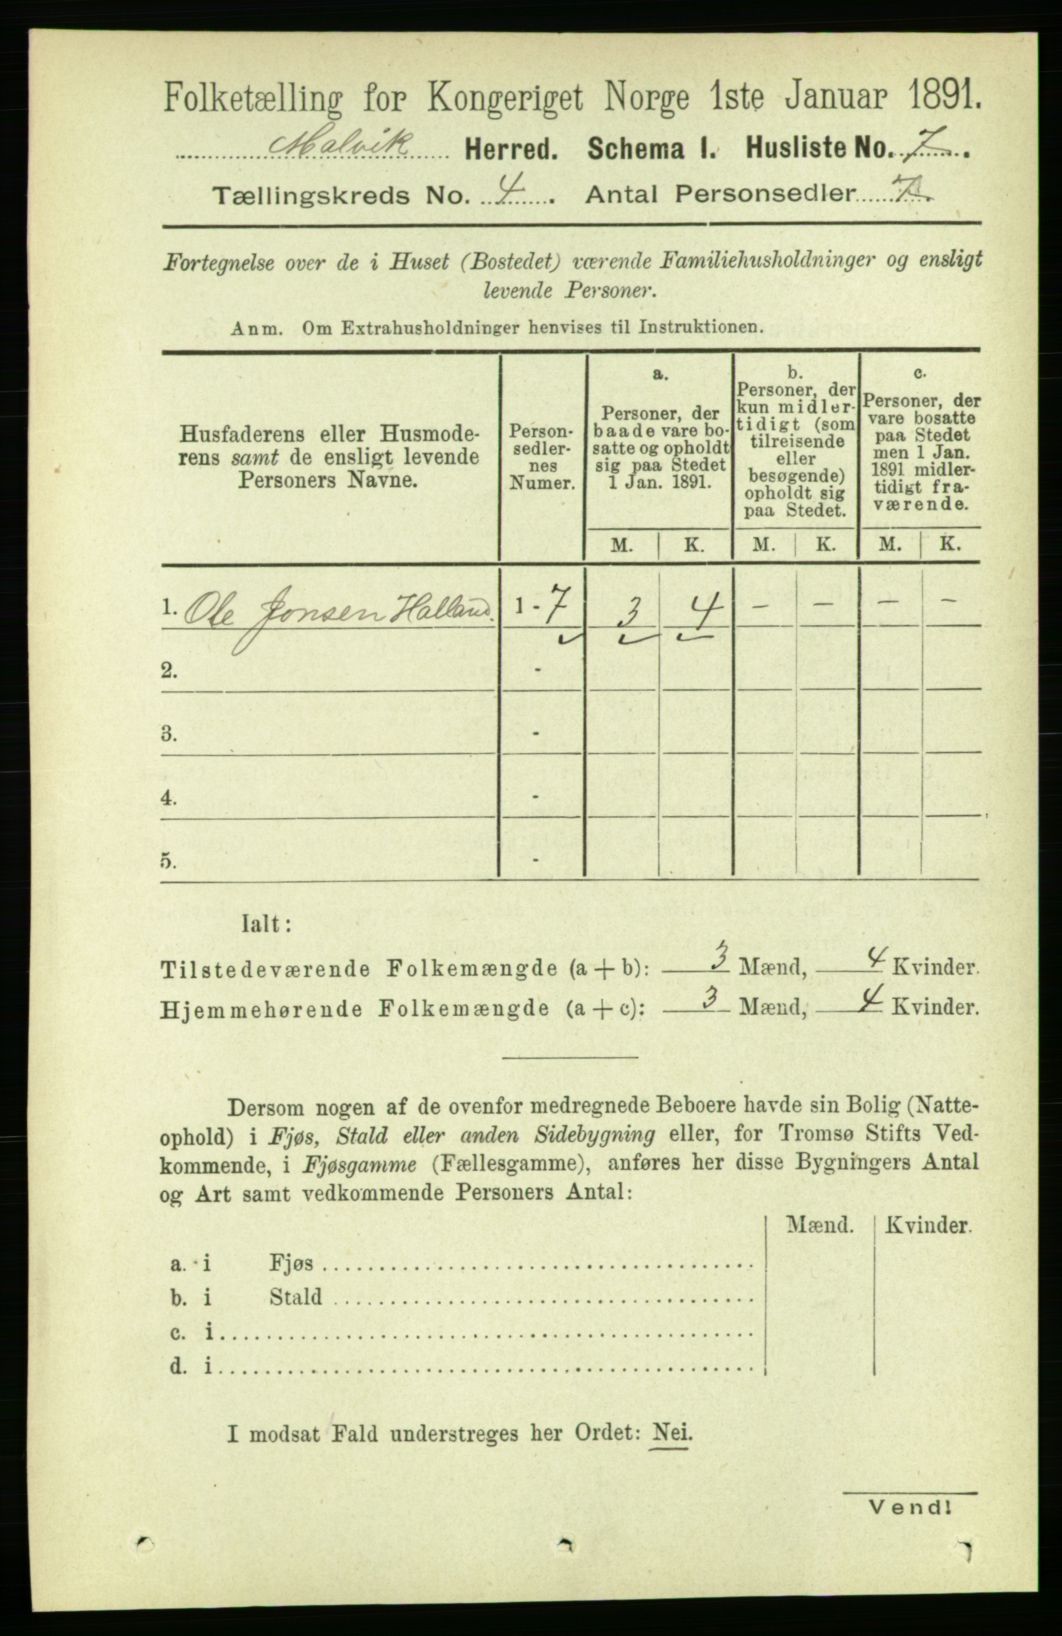 Folketælling for Kongeriget Norge 1ste Januar 1891.
Malvik Herred. Schema I. Husliste No. 7.
Tællingskreds No. 4. Antal Personsedler 7.
Fortegnelse over de i Huset (Bostedet) værende Familiehusholdninger og ensligt
levende Personer.
Anm. Om Extrahusholdninger henvises til Instruktionen.
Husfaderens eller Husmode-
rens samt de ensligt levende
Personers Navne.
Person-
sedler-
nes
Numer.
a.
Personer, der
baade vare bo-
satte og opholdt
sig paa Stedet
1 Jan. 1891.
b.
Personer, der
kun midler-
tidigt (som
tilreisende
eller
besøgende)
opholdt sig
paa Stedet.
c.
Personer, der
vare bosatte
paa Stedet
men 1 Jan.
1891 midler-
tidigt fra-
værende.
M. K. M. K. M. K.
1. Ole Jonsen Halland. 1 - 7 3 4 – – – –
2. -
3. -
4. -
5. -
Ialt:
Tilstedeværende Folkemængde (a + b): 3 Mænd, 4 Kvinder.
Hjemmehørende Folkemængde (a + c): 3 Mænd, 4 Kvinder.
Dersom nogen af de ovenfor medregnede Beboere havde sin Bolig (Natte-
ophold) i Fjøs, Stald eller anden Sidebygning eller, for Tromsø Stifts Ved-
kommende, i Fjøsgamme (Fællesgamme), anføres her disse Bygningers Antal
og Art samt vedkommende Personers Antal:
Mænd. Kvinder.
a. i Fjøs
b. i Stald
c. i
d. i
I modsat Fald understreges her Ordet: Nei.
Vend!